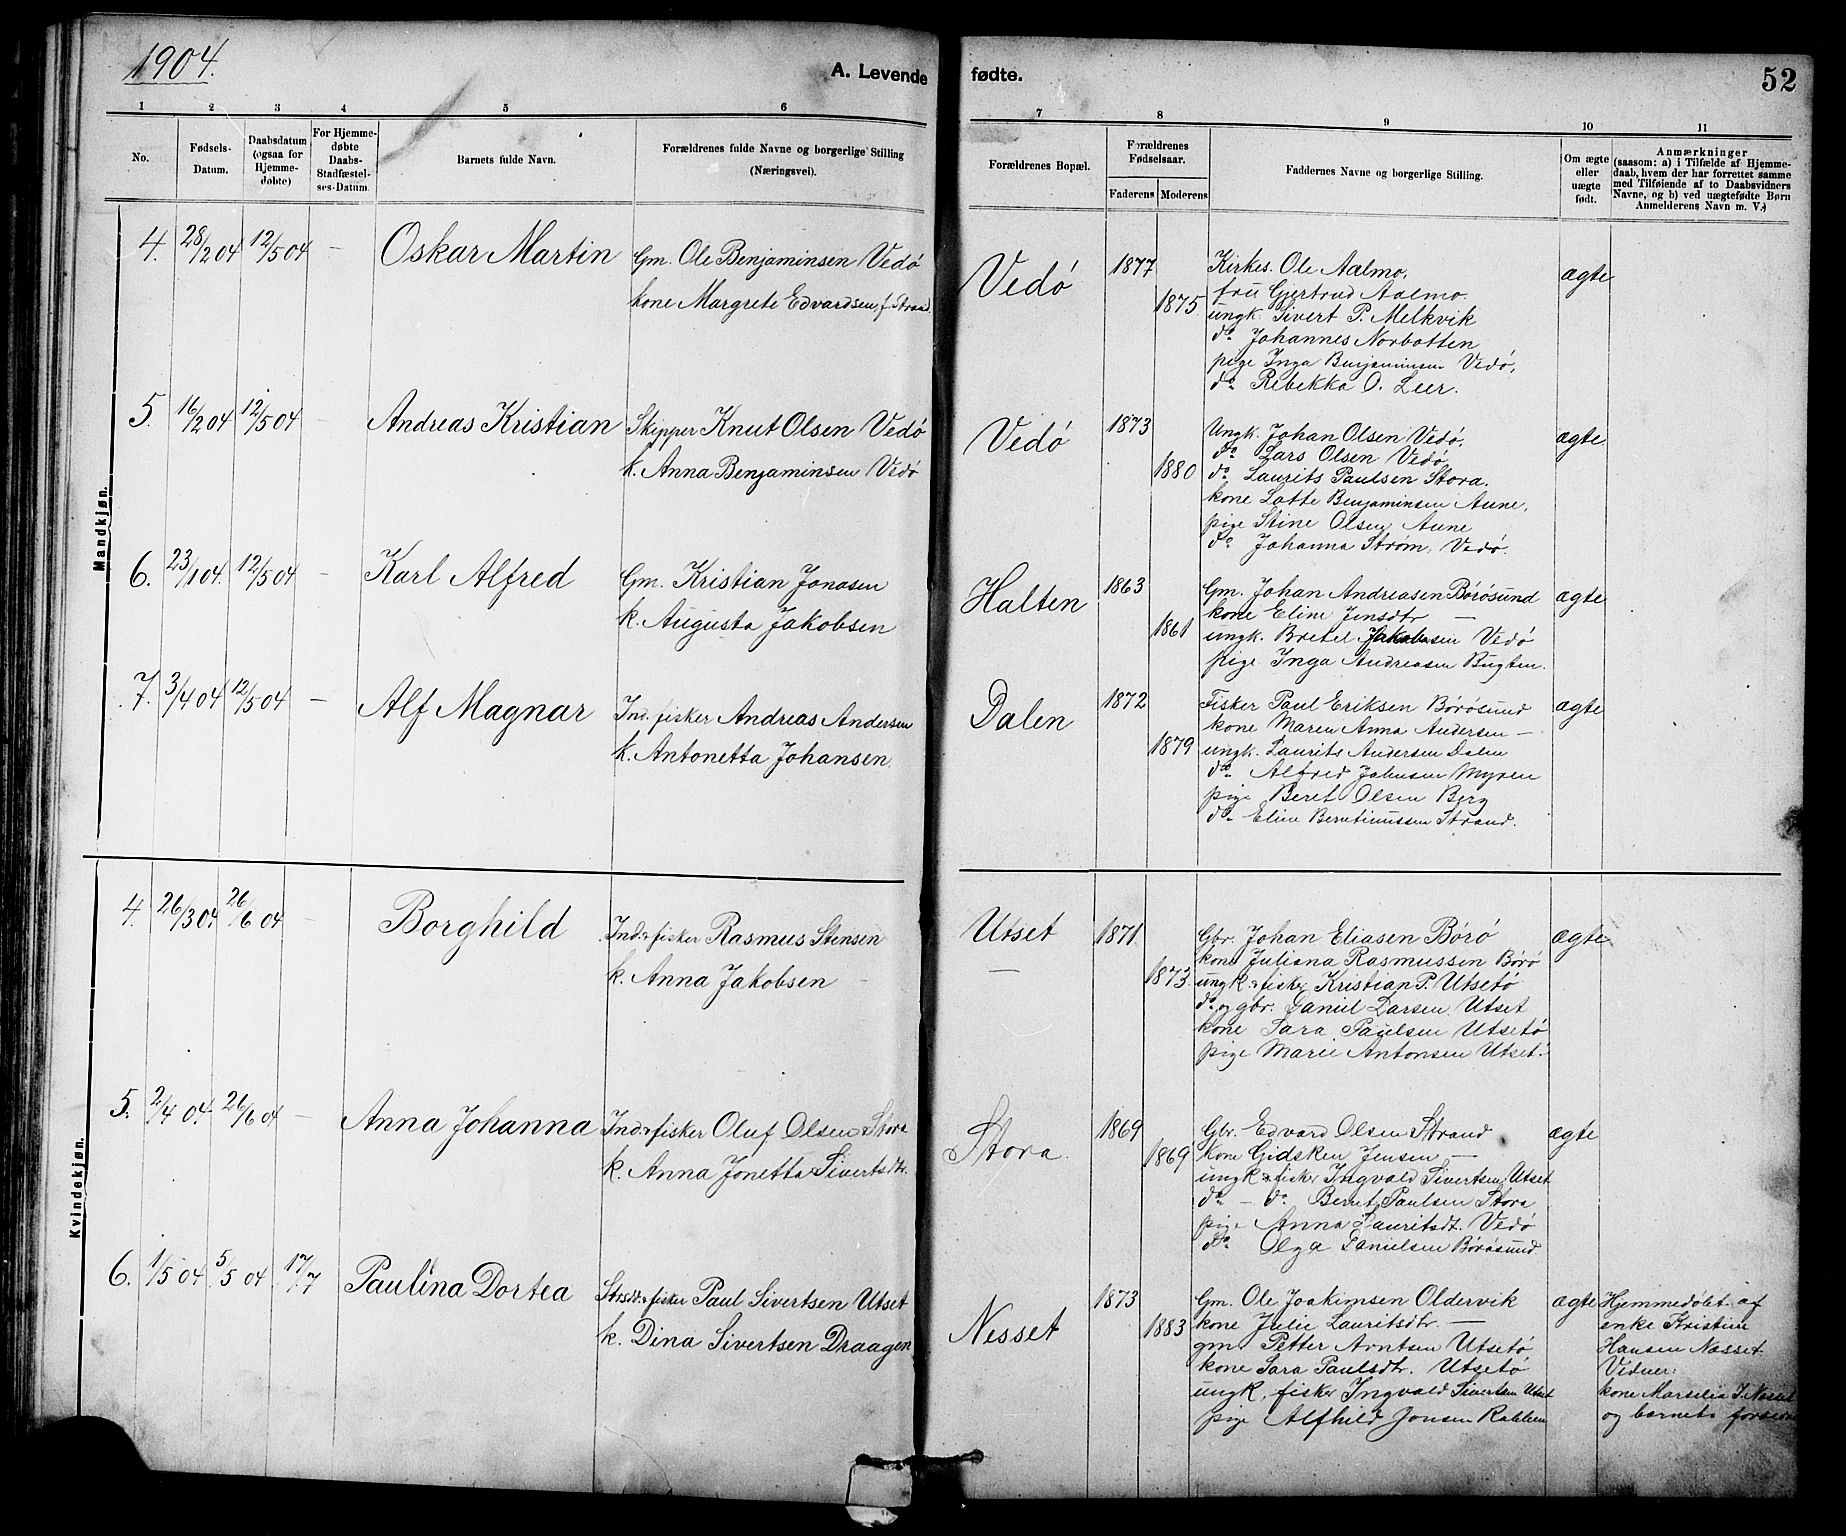 1904.
A. Levende
1 2 3 4 5 6
No.
Fødsels-
Datum.
Daabsdatum
(ogsaa for
Hjemme-
døbte)
For Hjemme-
døbte
Daabs-
Stadfæstel-
ses-Datum.
Barnets fulde Navn.
Forældrenes fulde Navne og borgerlige Stilling
(Næringsvei).
Mandkjøn.
4. 28/2 04 12/5 04 — Oskar Martin
Gm. Ole Benjaminsen Vedø
kone Margrete Edvardsen, f. Strand.
5. 16/2 04 12/5 04 — Andreas Kristian
Skipper Knut Olsen Vedø
k. Anna Benjaminsen Vedø
6. 23/1 04. 12/5 04 — Karl Alfred
Gm. Kristian Jonasen
k. Augusta Jakobsen
7. 3/4 04 12/5 04 — Alf Magnar
Ind. fisker Andreas Andersen
k. Antonetta Johansen.
Kvindekjøn.
4. 26/3 04. 26/6 04 — Borghild
Ind. & fisker Rasmus Stensen
k. Anna Jakobsen —
5. 2/4 04. 26/6 04 — Anna Johanna
Ind. & fisker Oluf Olsen Stora
k. Anna Jonetta Sivertsdtr.
6. 1/5 04 5/5 04 17/7 Paulina Dortea
& fisker Paul Sivertsen Utset
k. Dina Sivertsen Draagen
fødte.
52
7 8 9 10 11
Forældrenes Bopæl.
Forældrenes
Fødselsaar.
Faderens Moderens
Faddernes Navne og borgerlige Stilling.
Om ægte
eller
uægte
født.
Anmærkninger
(saasom: a) i Tilfælde af Hjemme-
daab, hvem der har forrettet samme
med Tilføiende af to Daabsvidners
Navne, og b) ved uægtefødte Børn
Anmelderens Navn m. V.)
Vedø 1877 1875 ægte
Kirkes. Ole Aalmo,
fru Gjertrud Aalmo.
ungk. Sivert P. Melkvik
do. Johannes Norbotten
pige Inga Benjaminsen Vedø,
do. Rebekka O. Leer.
Vedø 1873 1880 ægte
Ungk. Johan Olsen Vedø,
do. Lars Olsen Vedø
do. Laurits Paulsen Stora.
kone Lotte Benjaminsen Aune,
pige Stine Olsen Aune
do. Johanna Strøm, Vedø.
Halten 1863 1861 ægte
Gm. Johan Andreasen Børøsund
kone Eline Jensdtr —
ungk. Bretel Jakobsen Vedø
pige Inga Andreasen Bugten.
Dalen 1872 1879 ægte
Fisker Paul Eriksen Børøsund
kone Maren Anna Andersen —
ungk. Laurits Andersen Dalen
do. Alfred Johnsen Myren
pige Beret Olsen Berg
do. Eline Berntinussen Strand.
Utset — 1871 1873. ægte
Gbr. Johan Eliasen Børø
kone Juliana Rasmussen Børø
ungk. & fisker Kristian P. Utsetø
do. og gbr. Daniel Larsen Utset
kone Sara Paulsen Utsetø
pige Marie Antonsen Utset.
Stora. 1869 1869 ægte
Gbr. Edvard Olsen Strand
Kone Gidsken Jensen —
ungk. & fisker Ingvald Sivertsen Utset
do. — do. Bernt Paulsen Stora
pige Anna Lauritsdt. Vedø
do. Olga Danielsen Børøsund
Nesset 1873 1883 ægte
Gm. Ole Joakimsen Oldervik
kone Julie Lauritsdtr. —
gm Petter Arntsen Utsetø
kone Sara Paulsdtr. Utsetø
ungk. fisker Ingvald Sivertsen Utset
pige Alfhild Jonsen Rabben
Hjemmedøbt af
enke Kristine
Hansen Næsset.
Vidner:
kone Marselia J. Næsset
og barnets